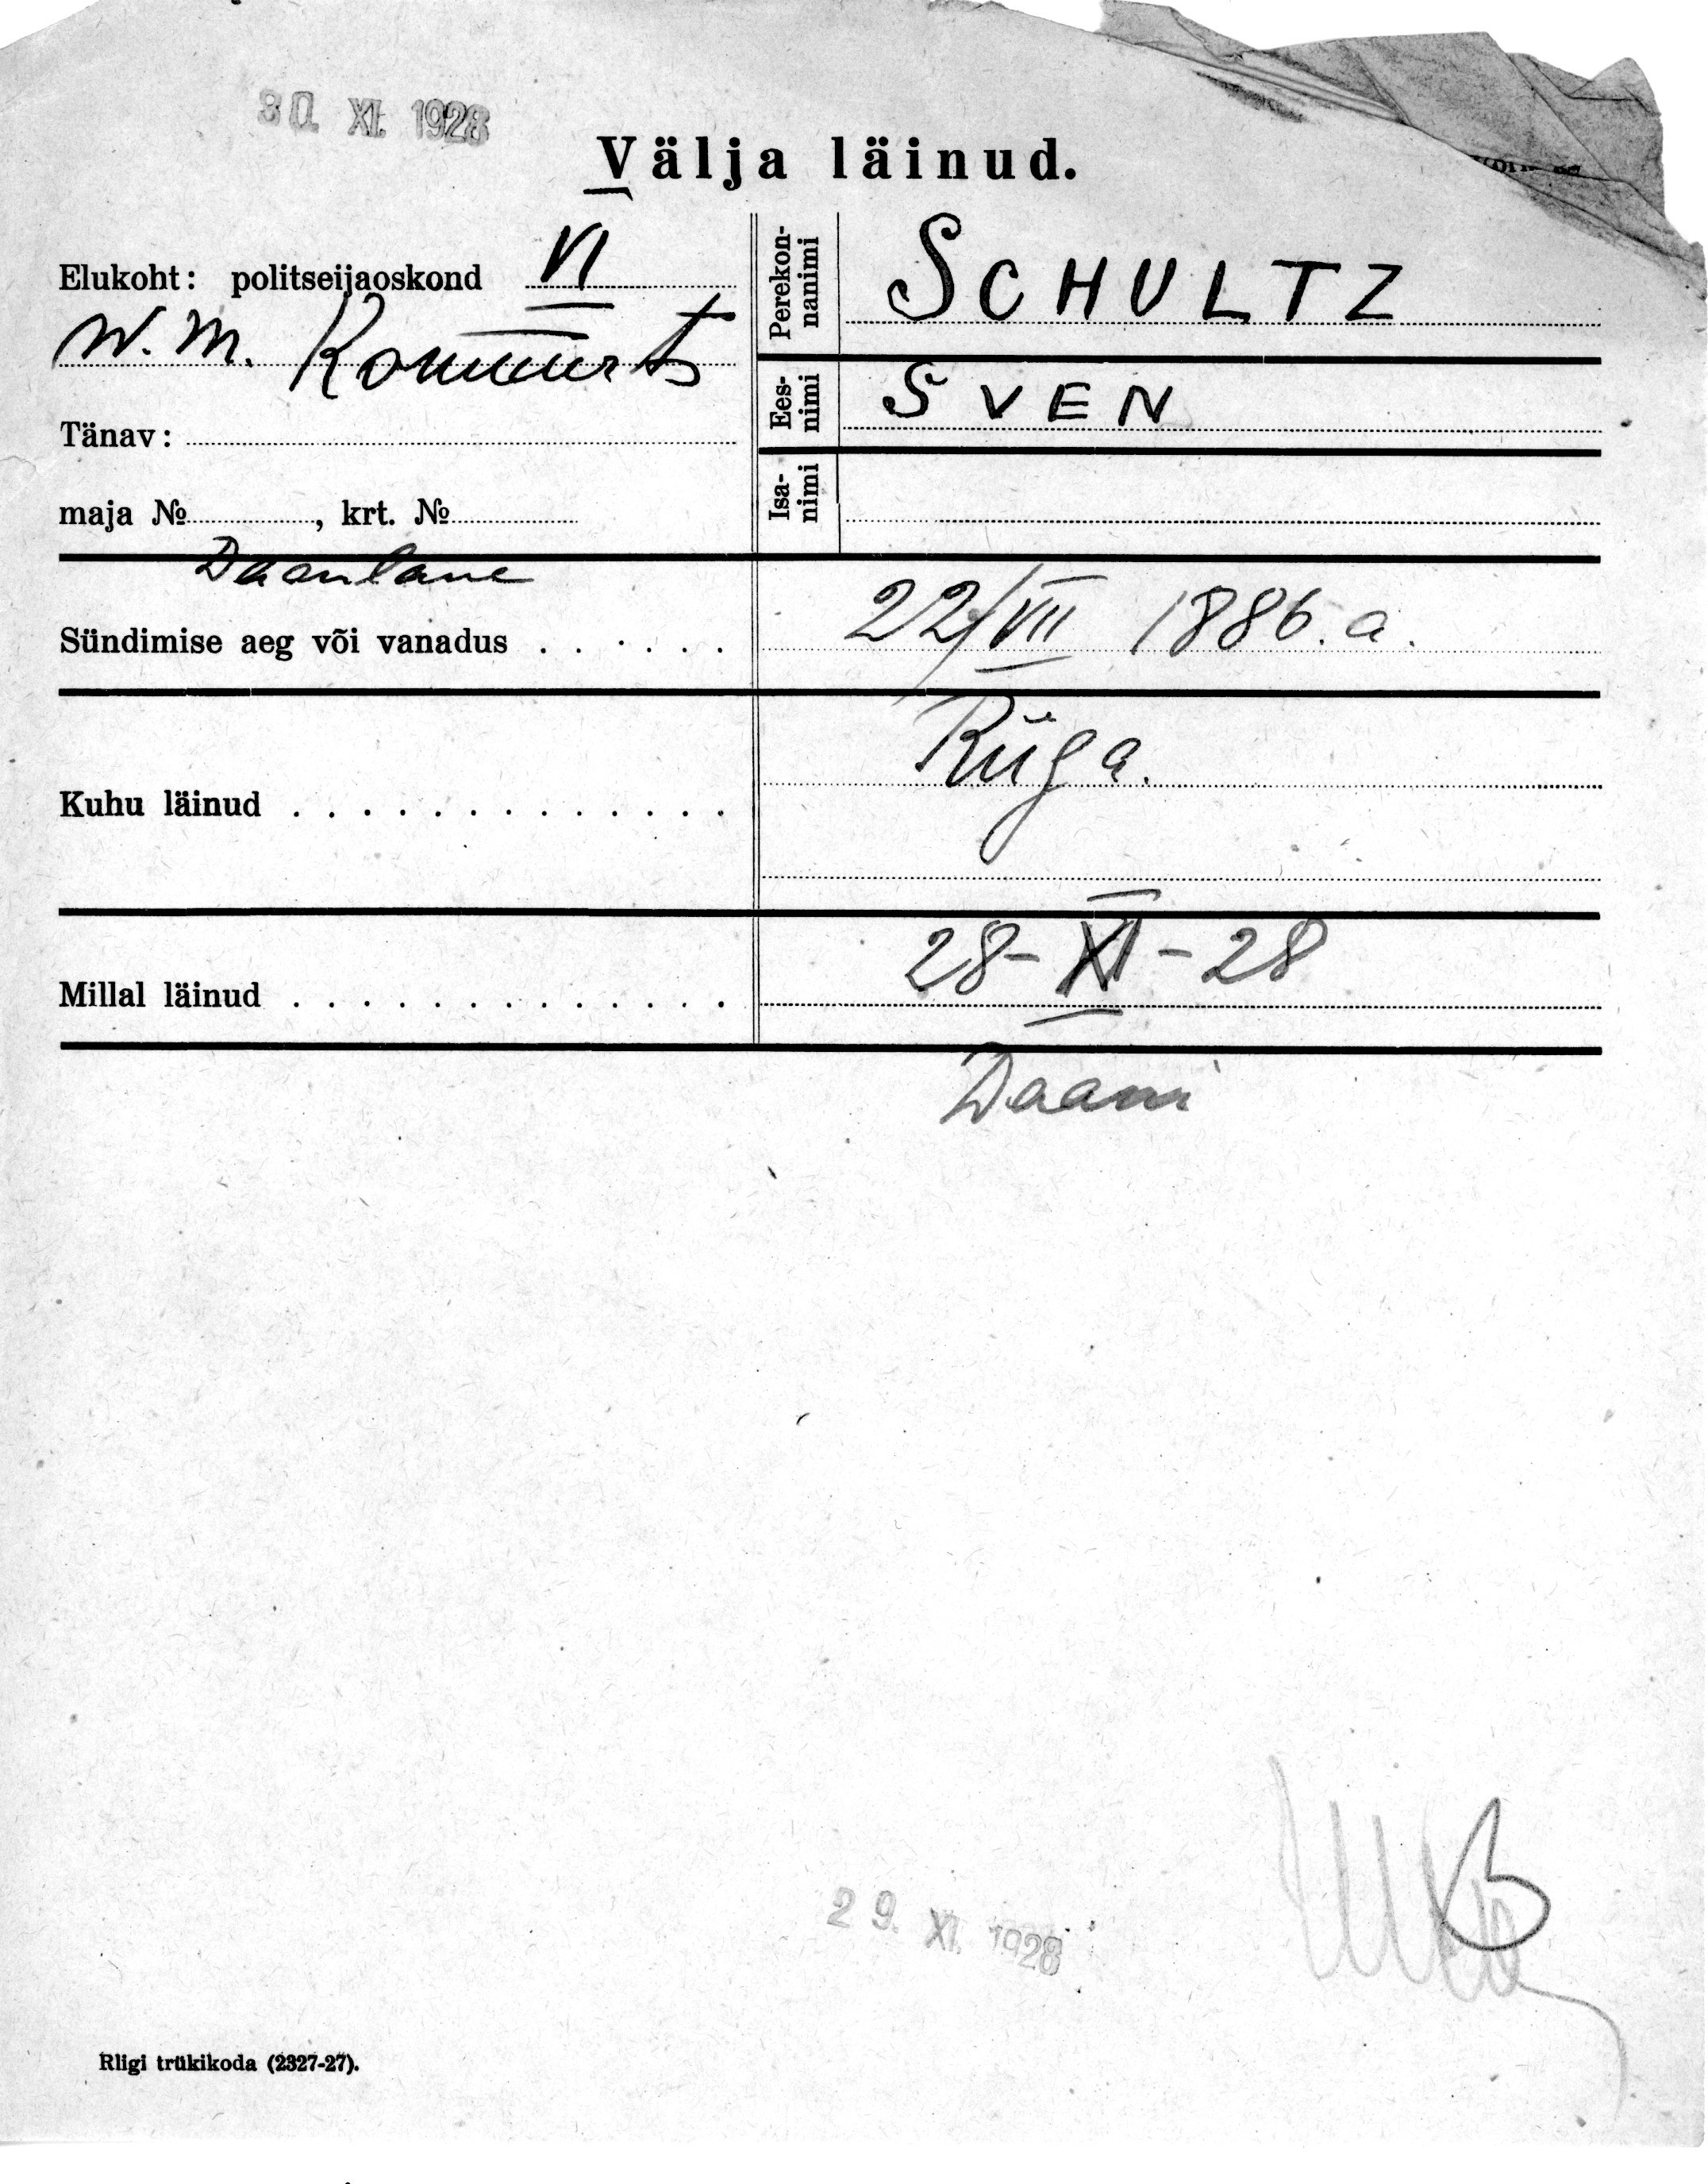 30. XI. 1928
Välja läinud.
Elukoht: politseijaoskond VI
W. M. Kommerts
Tänav:
maja № , krt. №
Perekon-
nanimi
SCHULTZ
Ees-
nimi
SVEN
Isa-
nimi
Daanlane
Sündimise aeg või vanadus . . . . . .
22/VII 1886. a.
Kuhu läinud . . . . . . . . . . . . .
Riiga.
Millal läinud . . . . . . . . . . . . .
28-XI-28
Daani
29. XI. 1928
Riigi trükikoda (2327-27).